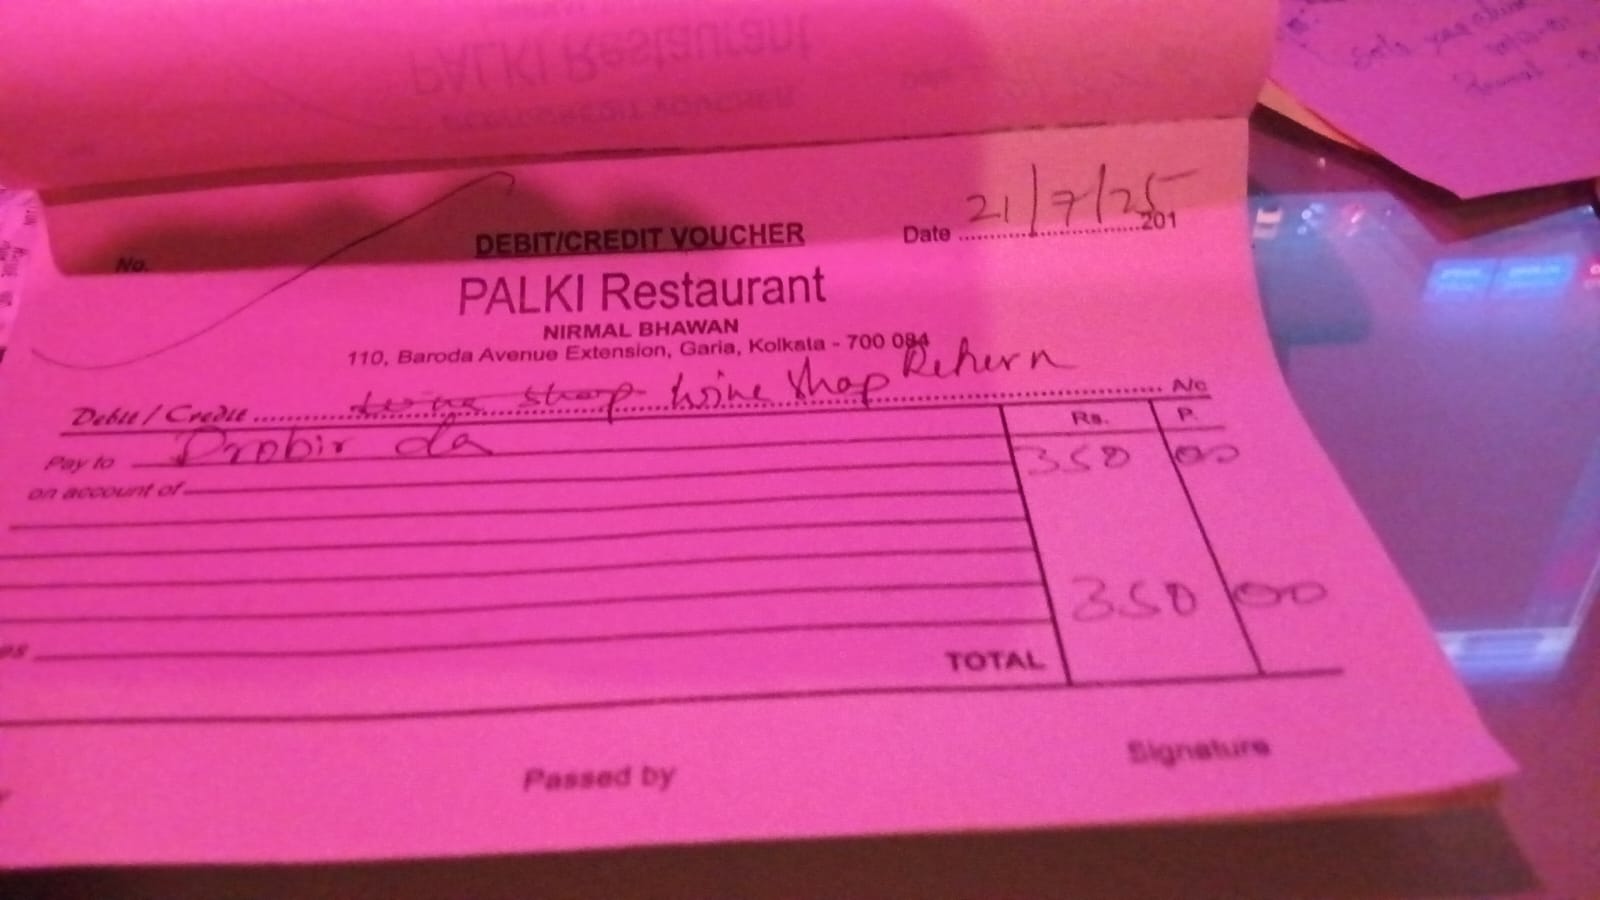 PALKI Restaurant
No.
DEBIT/CREDIT VOUCHER
Date 21/7/25 201
PALKI Restaurant
NIRMAL BHAWAN
110, Baroda Avenue Extension, Garia, Kolkata - 700 084
Debit / Credit wine shop wine shop Return A/c
Pay to Probir da Rs. P.
on account of 350 00
350 00
TOTAL
Passed by Signature